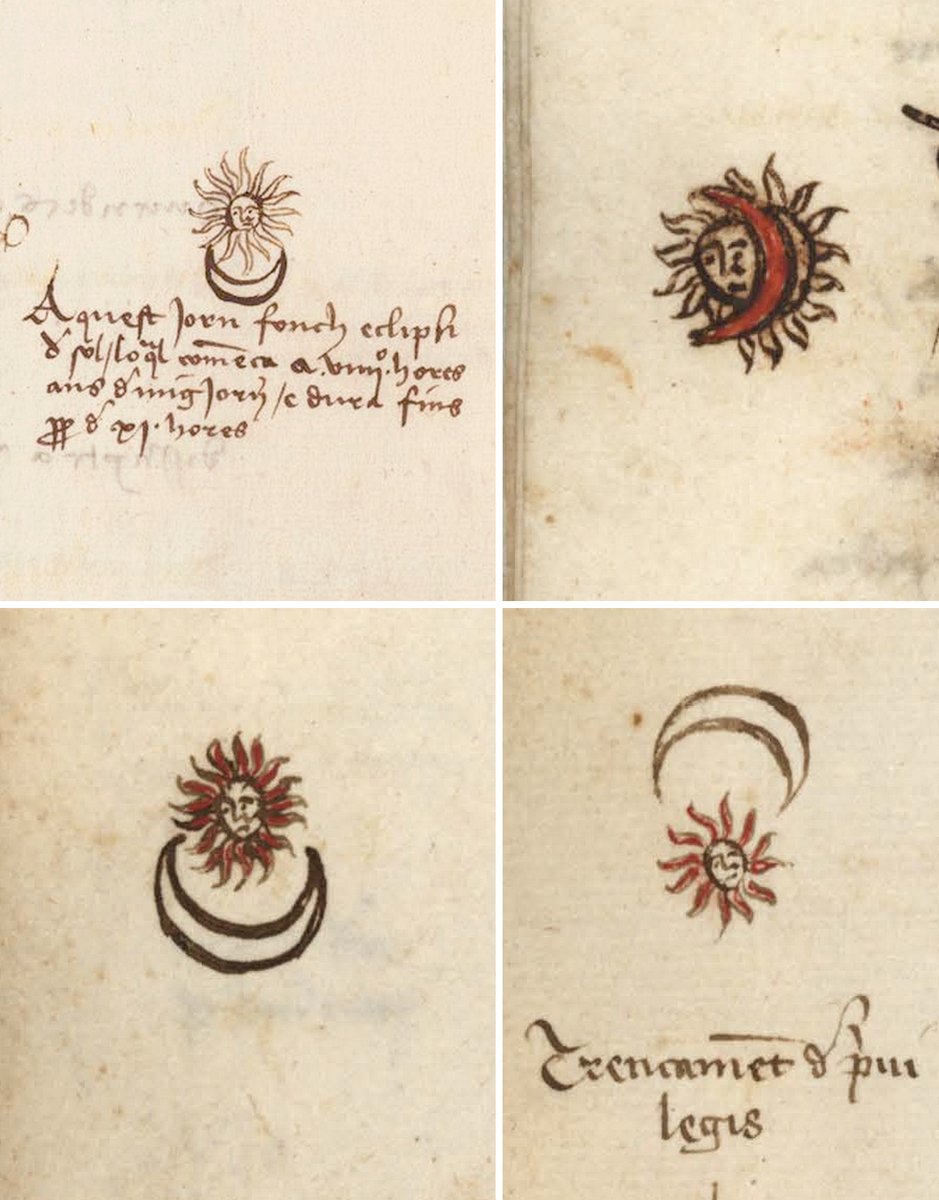 Aquest jorn fonch eclipsi
d sol / loql comẽca a .viiijº. hores
ans d mig Jorn̄ / e dura fins
d xj. hores
Trencamēt d pui
legis